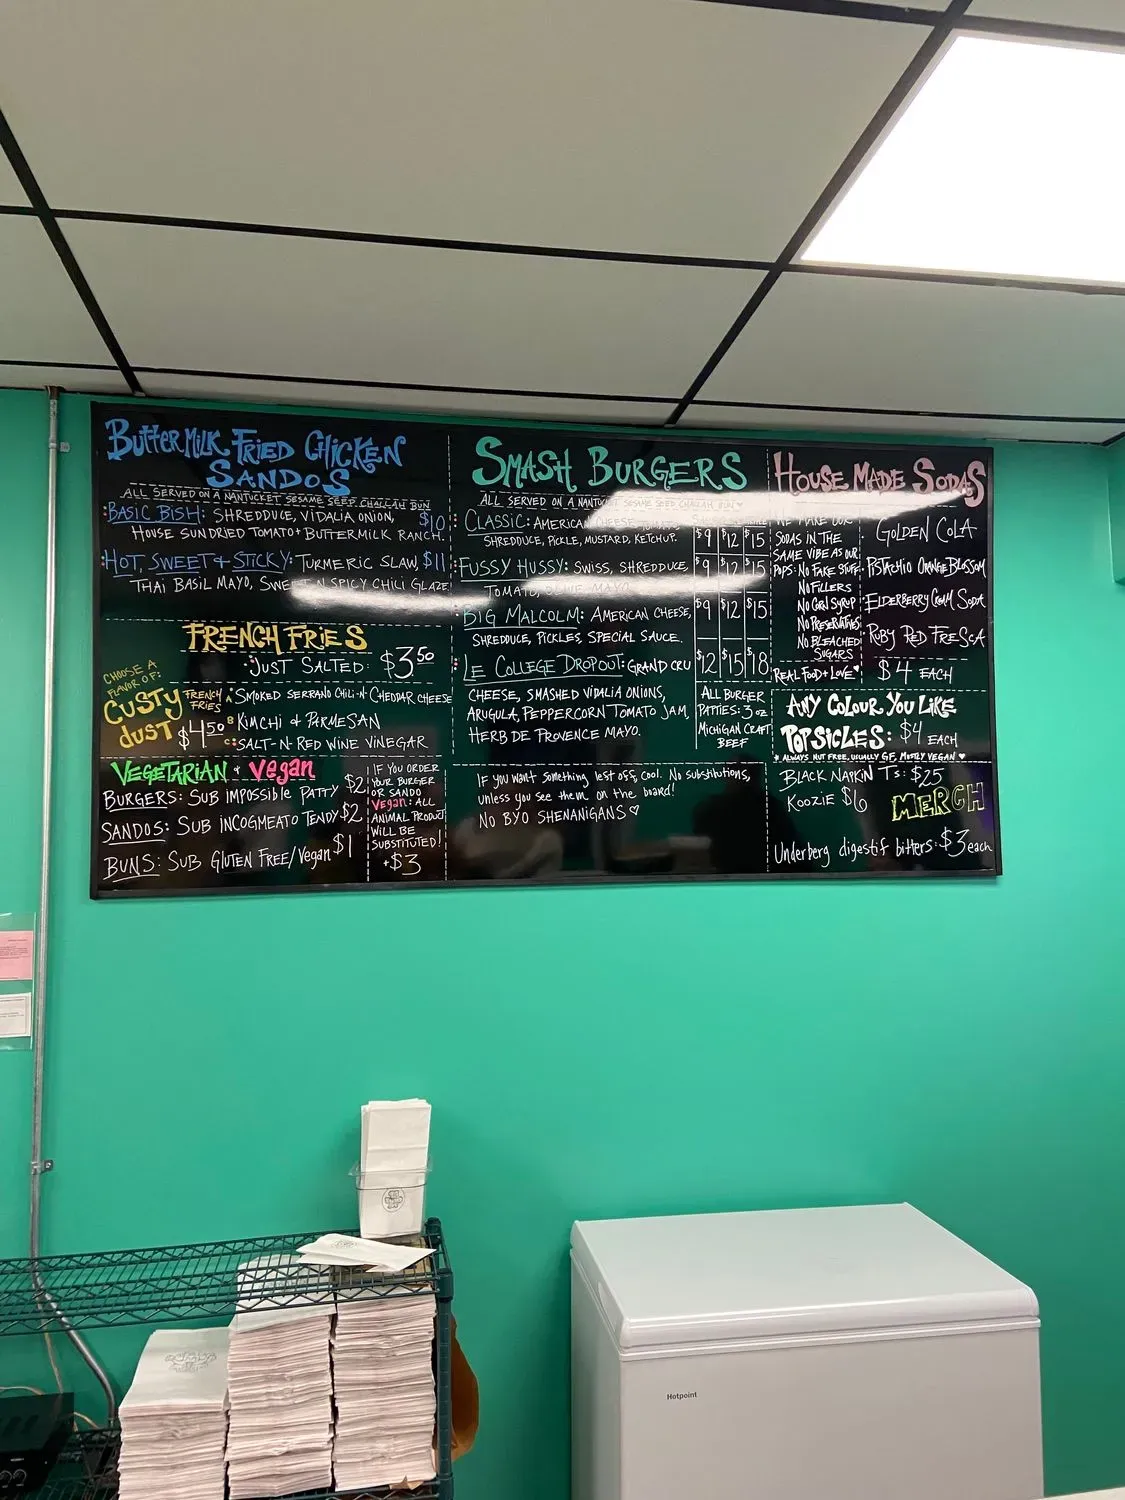 ButterMilk Fried Chicken
Sandos
All served on a Nantucket Sesame Seed Challah Bun
Basic Bish: Shredduce, Vidalia Onion, $10
House Sundried Tomato + Buttermilk Ranch.
Hot, Sweet + Sticky: Turmeric Slaw, $11
Thai Basil Mayo, Sweet N Spicy Chili Glaze
French Fries
Just Salted: $3.50
Choose a
flavor of:
Custy
Dust
French
Fries
$4.50
A: Smoked Serrano Chili-N-Cheddar Cheese
B: Kimchi & Parmesan
C: Salt-N-Red Wine Vinegar
Vegetarian + Vegan
Burgers: Sub Impossible Patty $2
Sandos: Sub Incogmeato Tendy $2
Buns: Sub Gluten Free/Vegan $1
If you order
your burger
or sando
Vegan: all
animal product
will be
substituted!
+$3
Smash Burgers
All served on a Nantucket Sesame Seed Challah Bun
Classic: American Cheese, Tomato, $9 $12 $15
Shredduce, Pickle, Mustard, Ketchup.
Fussy Hussy: Swiss, Shredduce, $9 $12 $15
Tomato, Mayo
Big Malcolm: American Cheese, $9 $12 $15
Shredduce, Pickles, Special Sauce.
Le College Dropout: Grand Cru $12 $15 $18
Cheese, Smashed Vidalia Onions,
Arugula, Peppercorn Tomato Jam,
Herb de Provence Mayo.
All burger
patties: 3 oz
Michigan Craft
Beef
If you want something left off, cool. No substitutions,
unless you see them on the board!
No BYO Shenanigans ♡
House Made Sodas
We make our
sodas in the
same vibe as our
pops: No Fake Stuff
No Fillers
No Corn Syrup
No Preservatives
No Bleached
Sugars
Real Food + Love ♥
Golden Cola
Pistachio Orange Blossom
Elderberry Cream Soda
Ruby Red Fresca
$4 each
Any Colour You Like
Popsicles: $4 each
* Always nut free, usually GF, mostly vegan ♥
Black Napkin Ts: $25
Koozie $6
Merch
Underberg digestif bitters: $3 each
Hotpoint